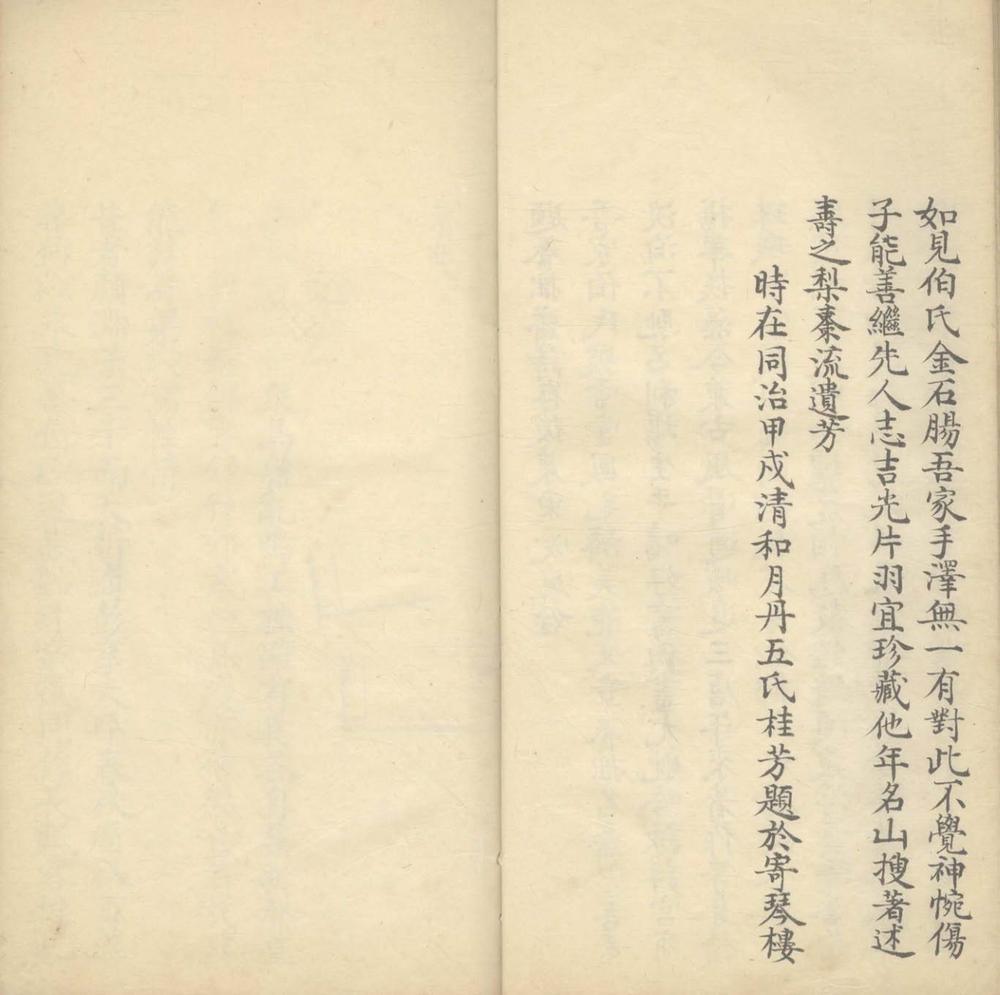 如見伯氏金石腸吾家手澤無一有對此不覺神惋傷
子能善繼先人志吉光片羽宜珍藏他年名山搜著述
壽之梨棗流遺芳
時在同治甲戌清和月丹五氏桂芳題於寄琴樓